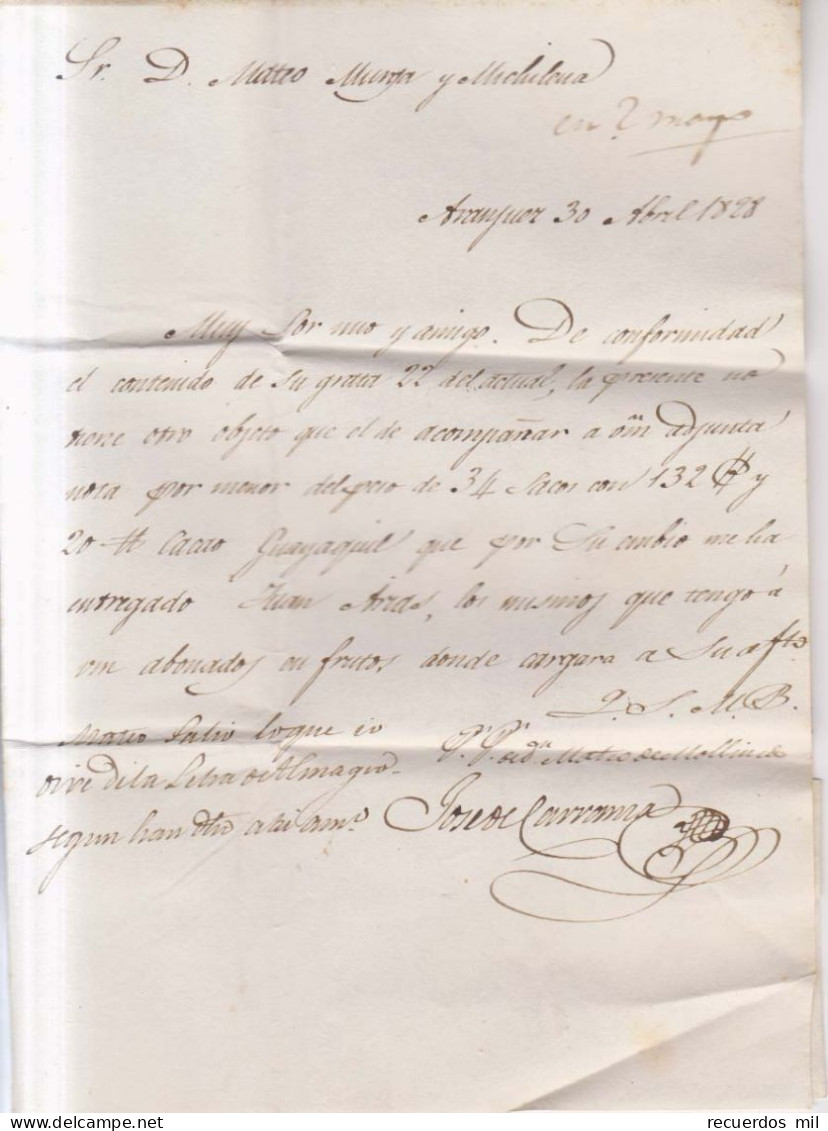 Sr. D. Mateo Murga y Michilena
en 2 mayo
Aranjuez 30 Abril 1828
Muy Sor mio y amigo. De conformidad
el contenido de Su grata 22 del actual, la presente no
tiene otro objeto que el de acompañar a Vm adjunta
nota por menor del peso de 34 Sacos con 132 @ y
20 tt Cacao Guayaquil que por Su cambio me ha
entregado Juan Arias, los mismos que tengo á
vm abonados en frutos donde cargara a Su afto.
Q. S. M. B.
Mateo Patio lo que
P. P. de dn Mateo de Mollinedo
dice de la Letra de Almagro
segun han dho
Jose de Carranza
recuerdos mil